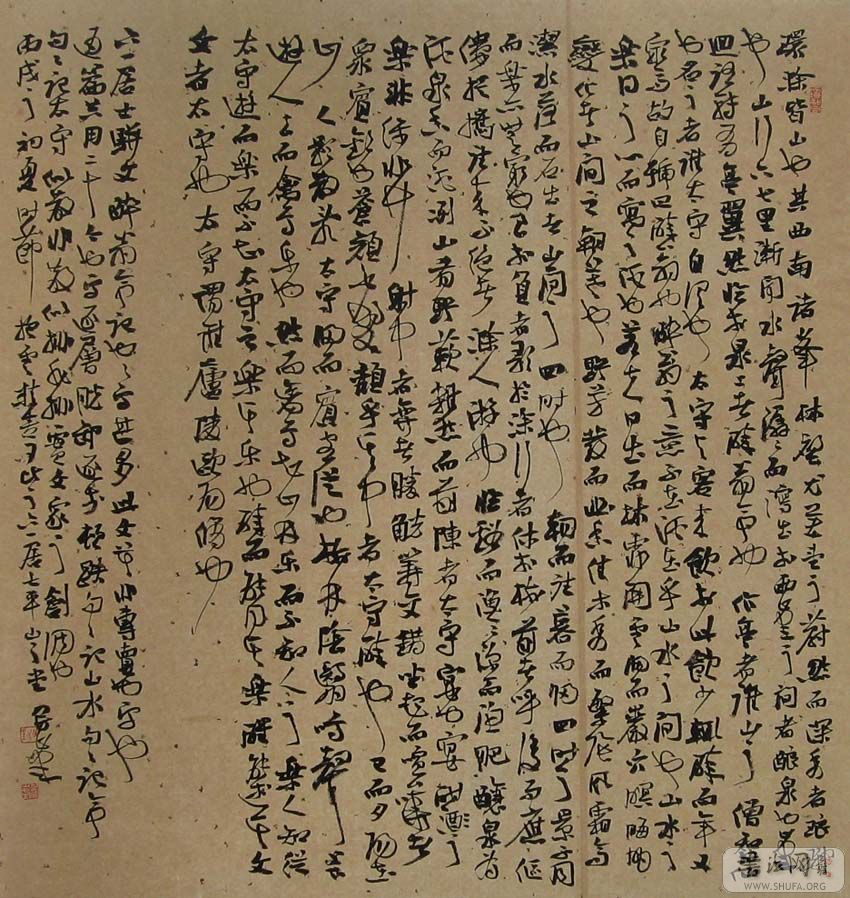 環滁皆山也其西南諸峯林壑尤美望之蔚然而深秀者琅
也山行六七里漸聞水聲潺々而瀉出於兩峯之間者釀泉也峯
回路轉有亭翼然臨於泉上者醉翁亭也作亭者誰山之僧
也名之者誰太守自謂也太守與客來飲於此飲少輒醉而年又
最高故自號曰醉翁也醉翁之意不在酒在乎山水之間也山水之
樂得之心而寓之酒也若夫日出而林霏開雲歸而巖穴暝晦明
變化者山間之朝暮也野芳發而幽香佳木秀而繁陰風霜高
潔水落而石出者山間之四時也朝而往暮而歸四時之景不同
而樂亦無窮也至於負者歌於塗行者休於樹前者呼後者應傴
僂提攜往來不絕者滁人遊也臨谿而漁谿深而漁肥釀泉為
酒泉香而酒洌山肴野蔌雜然而前陳者太守宴也宴酣之
樂非絲非竹射中者弈者勝觥籌交錯坐起而諠譁者
眾賓歡也蒼顏白髮頹乎其中者太守醉也已而夕陽在
山人影散亂太守歸而賓客從也樹林陰翳鳴聲上下
遊人去而禽鳥樂也然而禽鳥知山林樂而不知人之樂人知從
太守遊而樂而不知太守之樂其樂也醉而能同其樂醒能述其文
文者太守也太守謂誰廬陵歐陽脩也
六一居士駢文醉翁亭記也
通篇共用二十个也字逐層脫卸逐步頓跌句々記山水句々記亭
句々記太守似散非散似排非排文家之創調也
丙戌之初夏時節
書法网
WWW.SHUFA.ORG